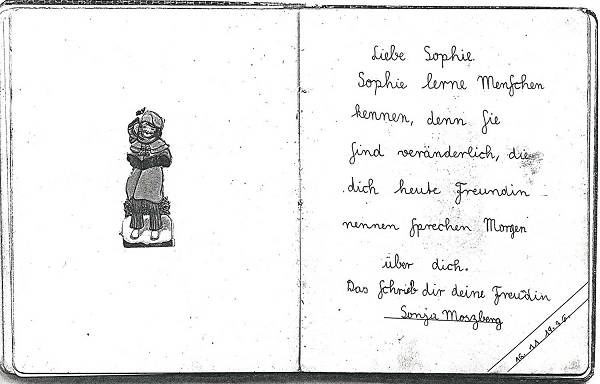 Liebe Sophie
Sophie lerne Menschen
kennen, denn Sie
sind veränderlich, die
dich heute Freundin
nennen sprechen Morgen
über dich.
Das schrieb dir deine Freudin
Sonja Moszberg
16.11.1936